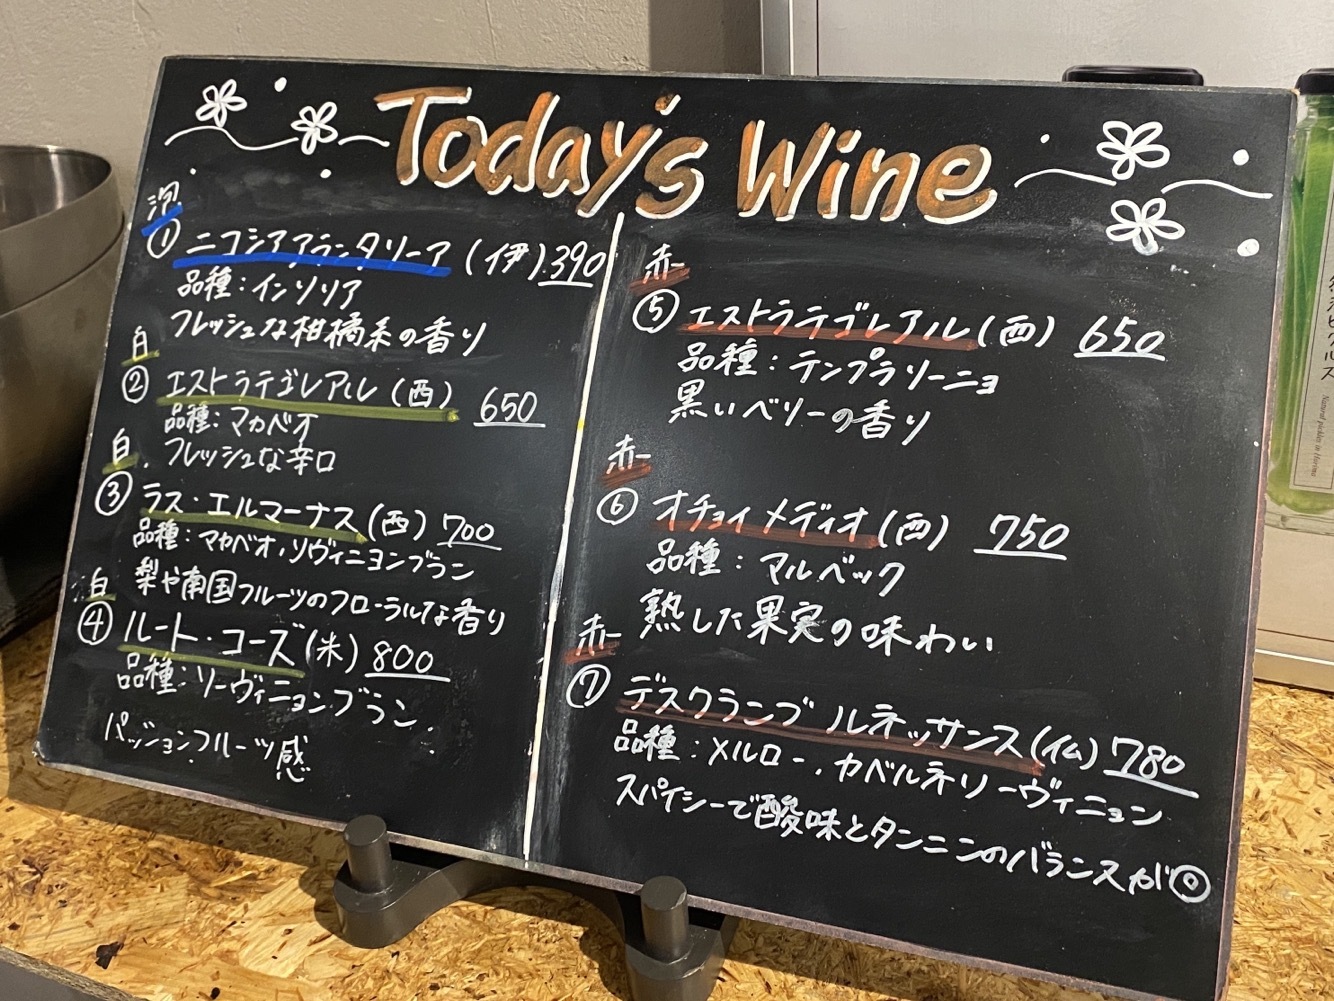 Today's Wine
泡
① ニコシアアランタリーア (伊) 390
品種:インソリア
フレッシュな柑橘系の香り
白
② エストラテゴレアル (西) 650
品種:マカベオ
フレッシュな辛口
白
③ ラス・エルマーナス (西) 700
品種:マカベオ,ソヴィニヨンブラン
梨や南国フルーツのフローラルな香り
白
④ ルート・コーズ (米) 800
品種:ソーヴィニョンブラン
パッションフルーツ感
赤
⑤ エストラテゴレアル (西) 650
品種:テンプラリーニョ
黒いベリーの香り
赤
⑥ オチョイメディオ (西) 750
品種:マルベック
熟した果実の味わい
赤
⑦ デスクランブ ルネッサンス (仏) 780
品種:メルロー,カベルネソーヴィニョン
スパイシーで酸味とタンニンのバランスが◎
Natural pickles in Harumi